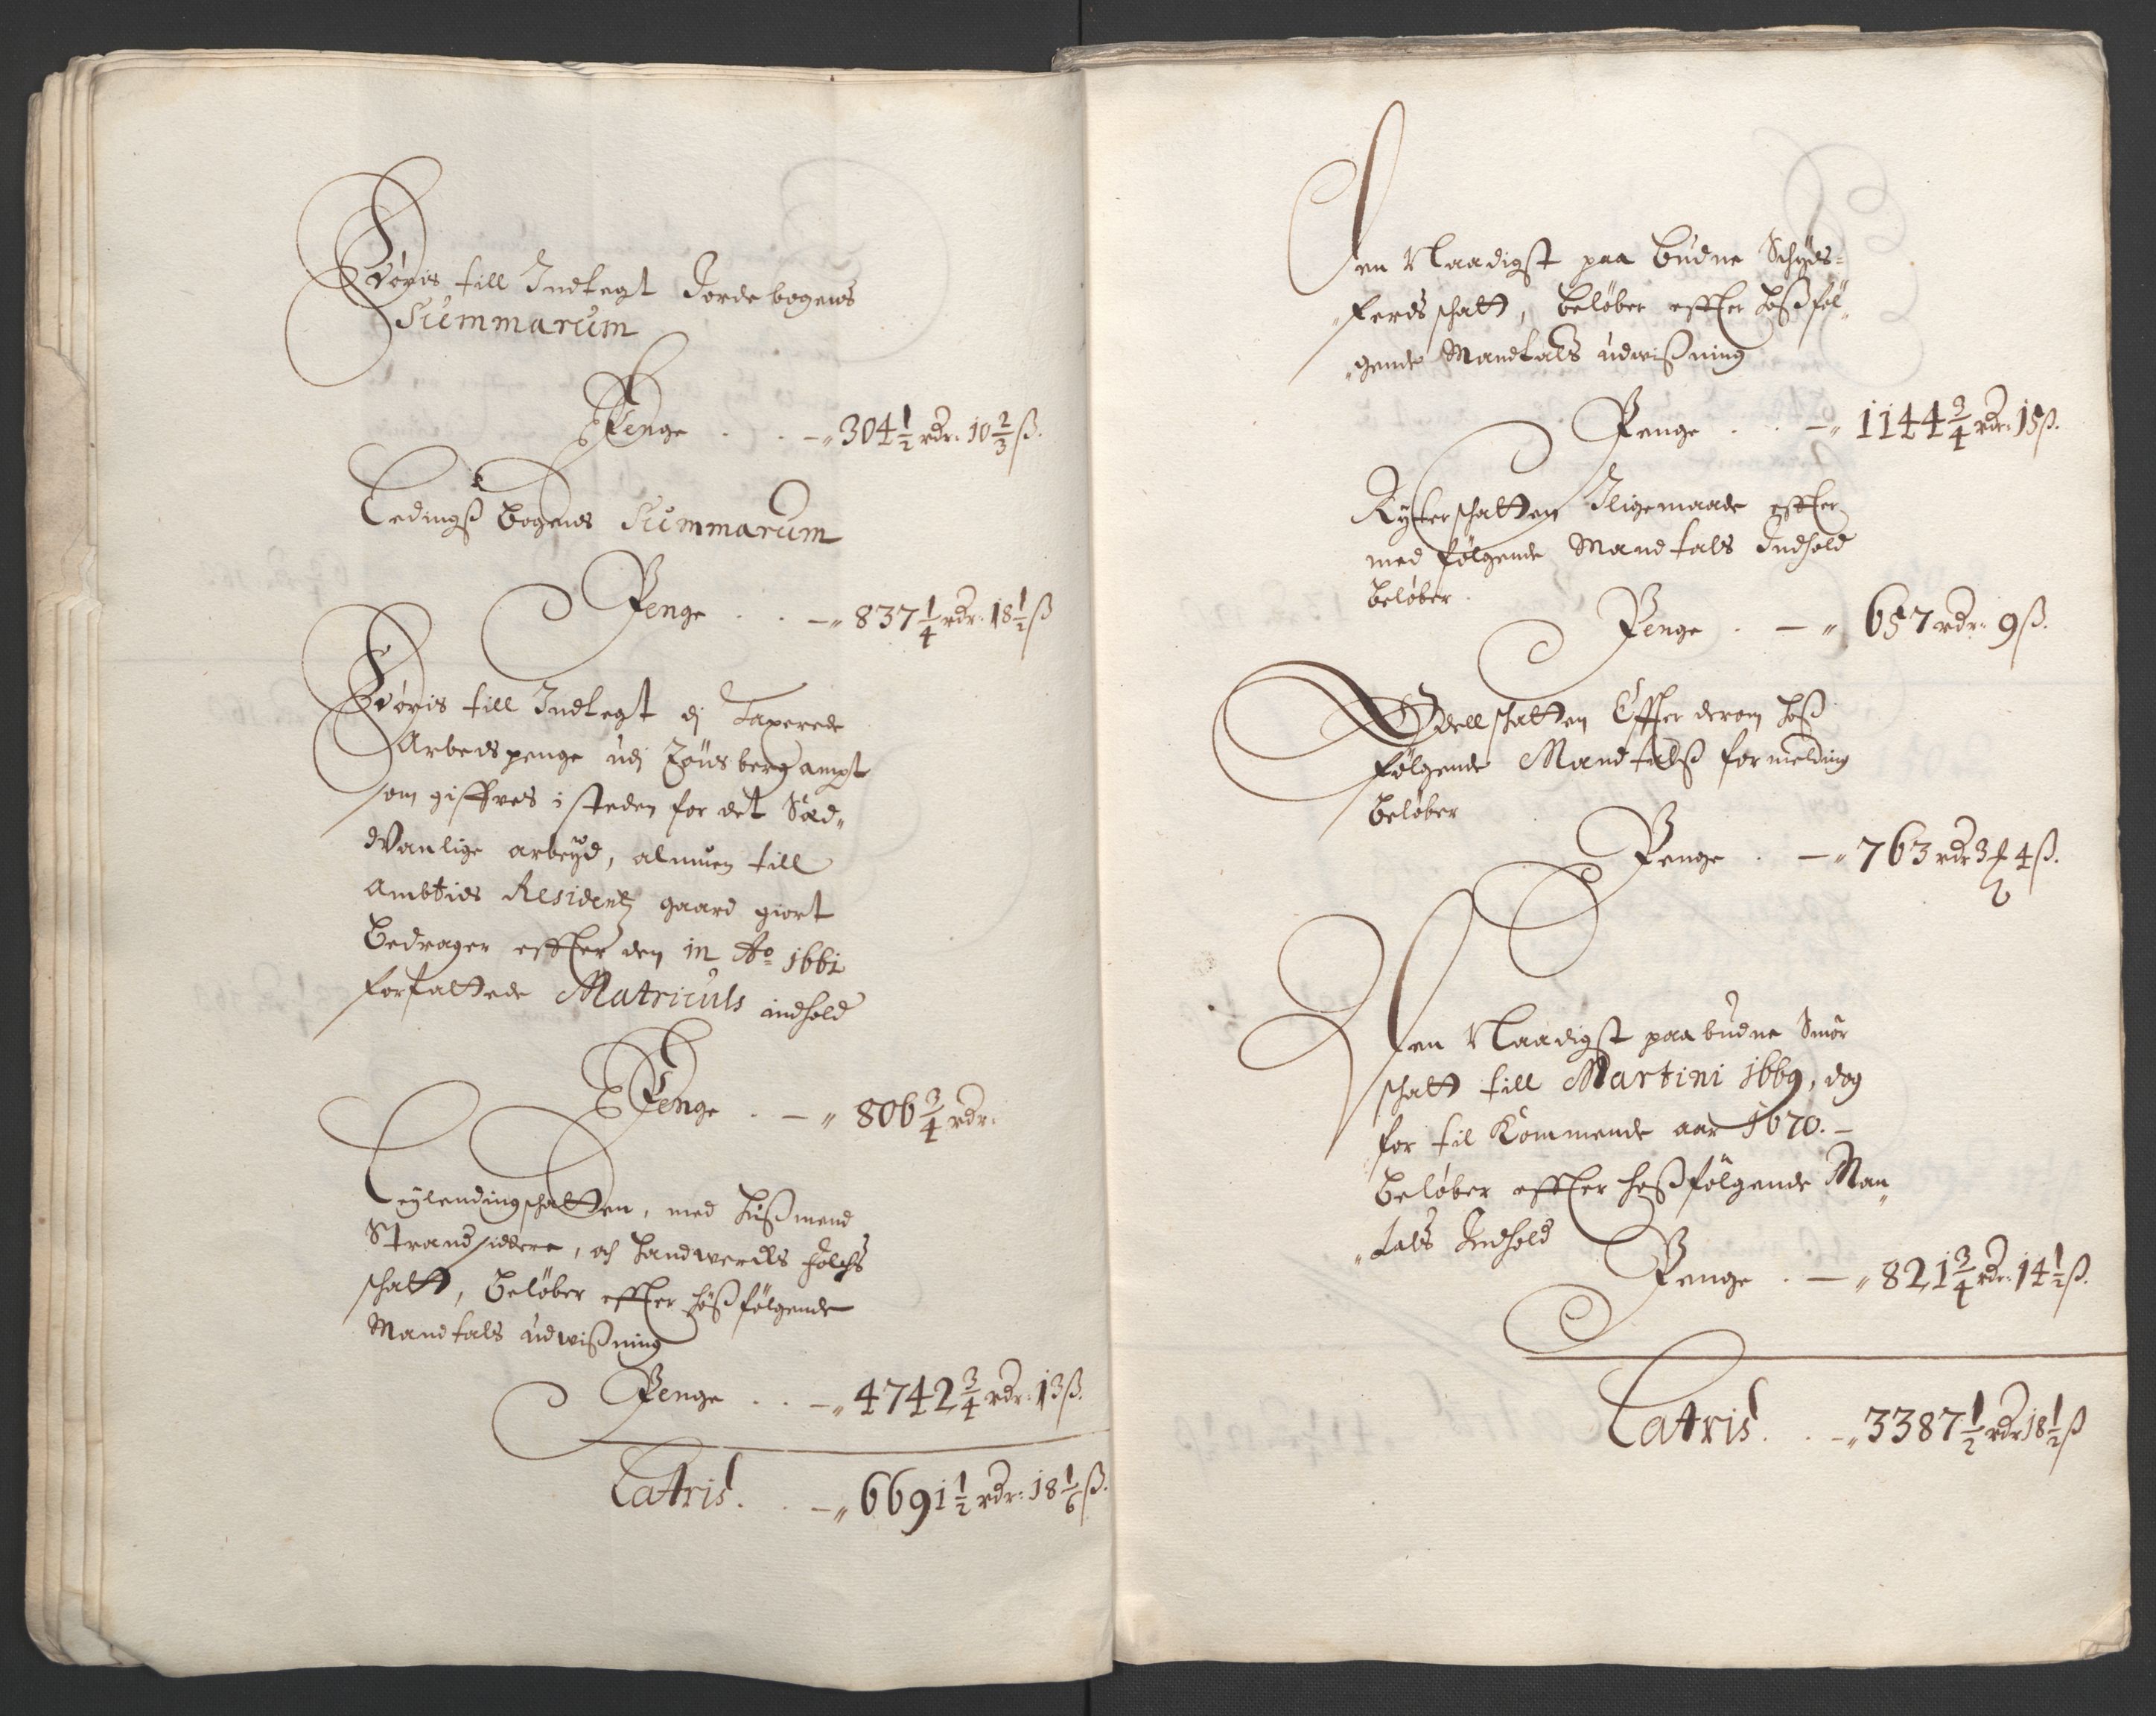 Føris till Indtegt Jordebogens
Summarum
Penge . . -„ 304 1/2 rdr. 10 2/3 ß.
Ledingß bogens Summarum
Penge . . -„ 837 1/4 rdr. 18 1/2 ß
Føris till Indtegt dj Taxerede
Arbeds penge udj Tønsberg ampt
som giffves i steden for det Sæd„
dvanlige arbeyd, almuen till
Ambtids Residentz gaard giort
Bedrager effter den in Ao 1661
forfattede Matriculs indhold
Penge . -„ 806 3/4 rdr.
Leylendingschatten, med Hußmend
Strandsiddere, och Handwercks folchs
schatt, Beløber effter hoßfølgende
Mandtals udwißning
Penge . . -„ 4742 3/4 rdr. 13 ß.
Latris . . -„ 6691 1/2 rdr. 18 1/6 ß.
Den Naadigst paa budne Schyds-
„ferds schatt, beløber effter hoßføl„
„gende Mandtals udwißning
Penge . . -„ 1144 3/4 rdr. 15 ß.
Rytterschatten Iligemaade effter
med følgende Mandtals Indhold
beløber.
Penge . -„ 657 rdr. 9 ß.
Odellschatten Effter derom hoß
følgende Mandtalß formelding
Beløber
Penge . -„ 763 rdr 3 ƒ 4 ß.
Den Naadigst paabudne Smør
schatt till Martini 1669, dog
for til Kommende aar 1670. -
Beløber effter hoßfølgende Man„
„tals Indhold
Penge . -„ 821 3/4 rdr. 14 1/2 ß.
Latris . . -„ 3387 1/2 rdr 18 1/2 ß